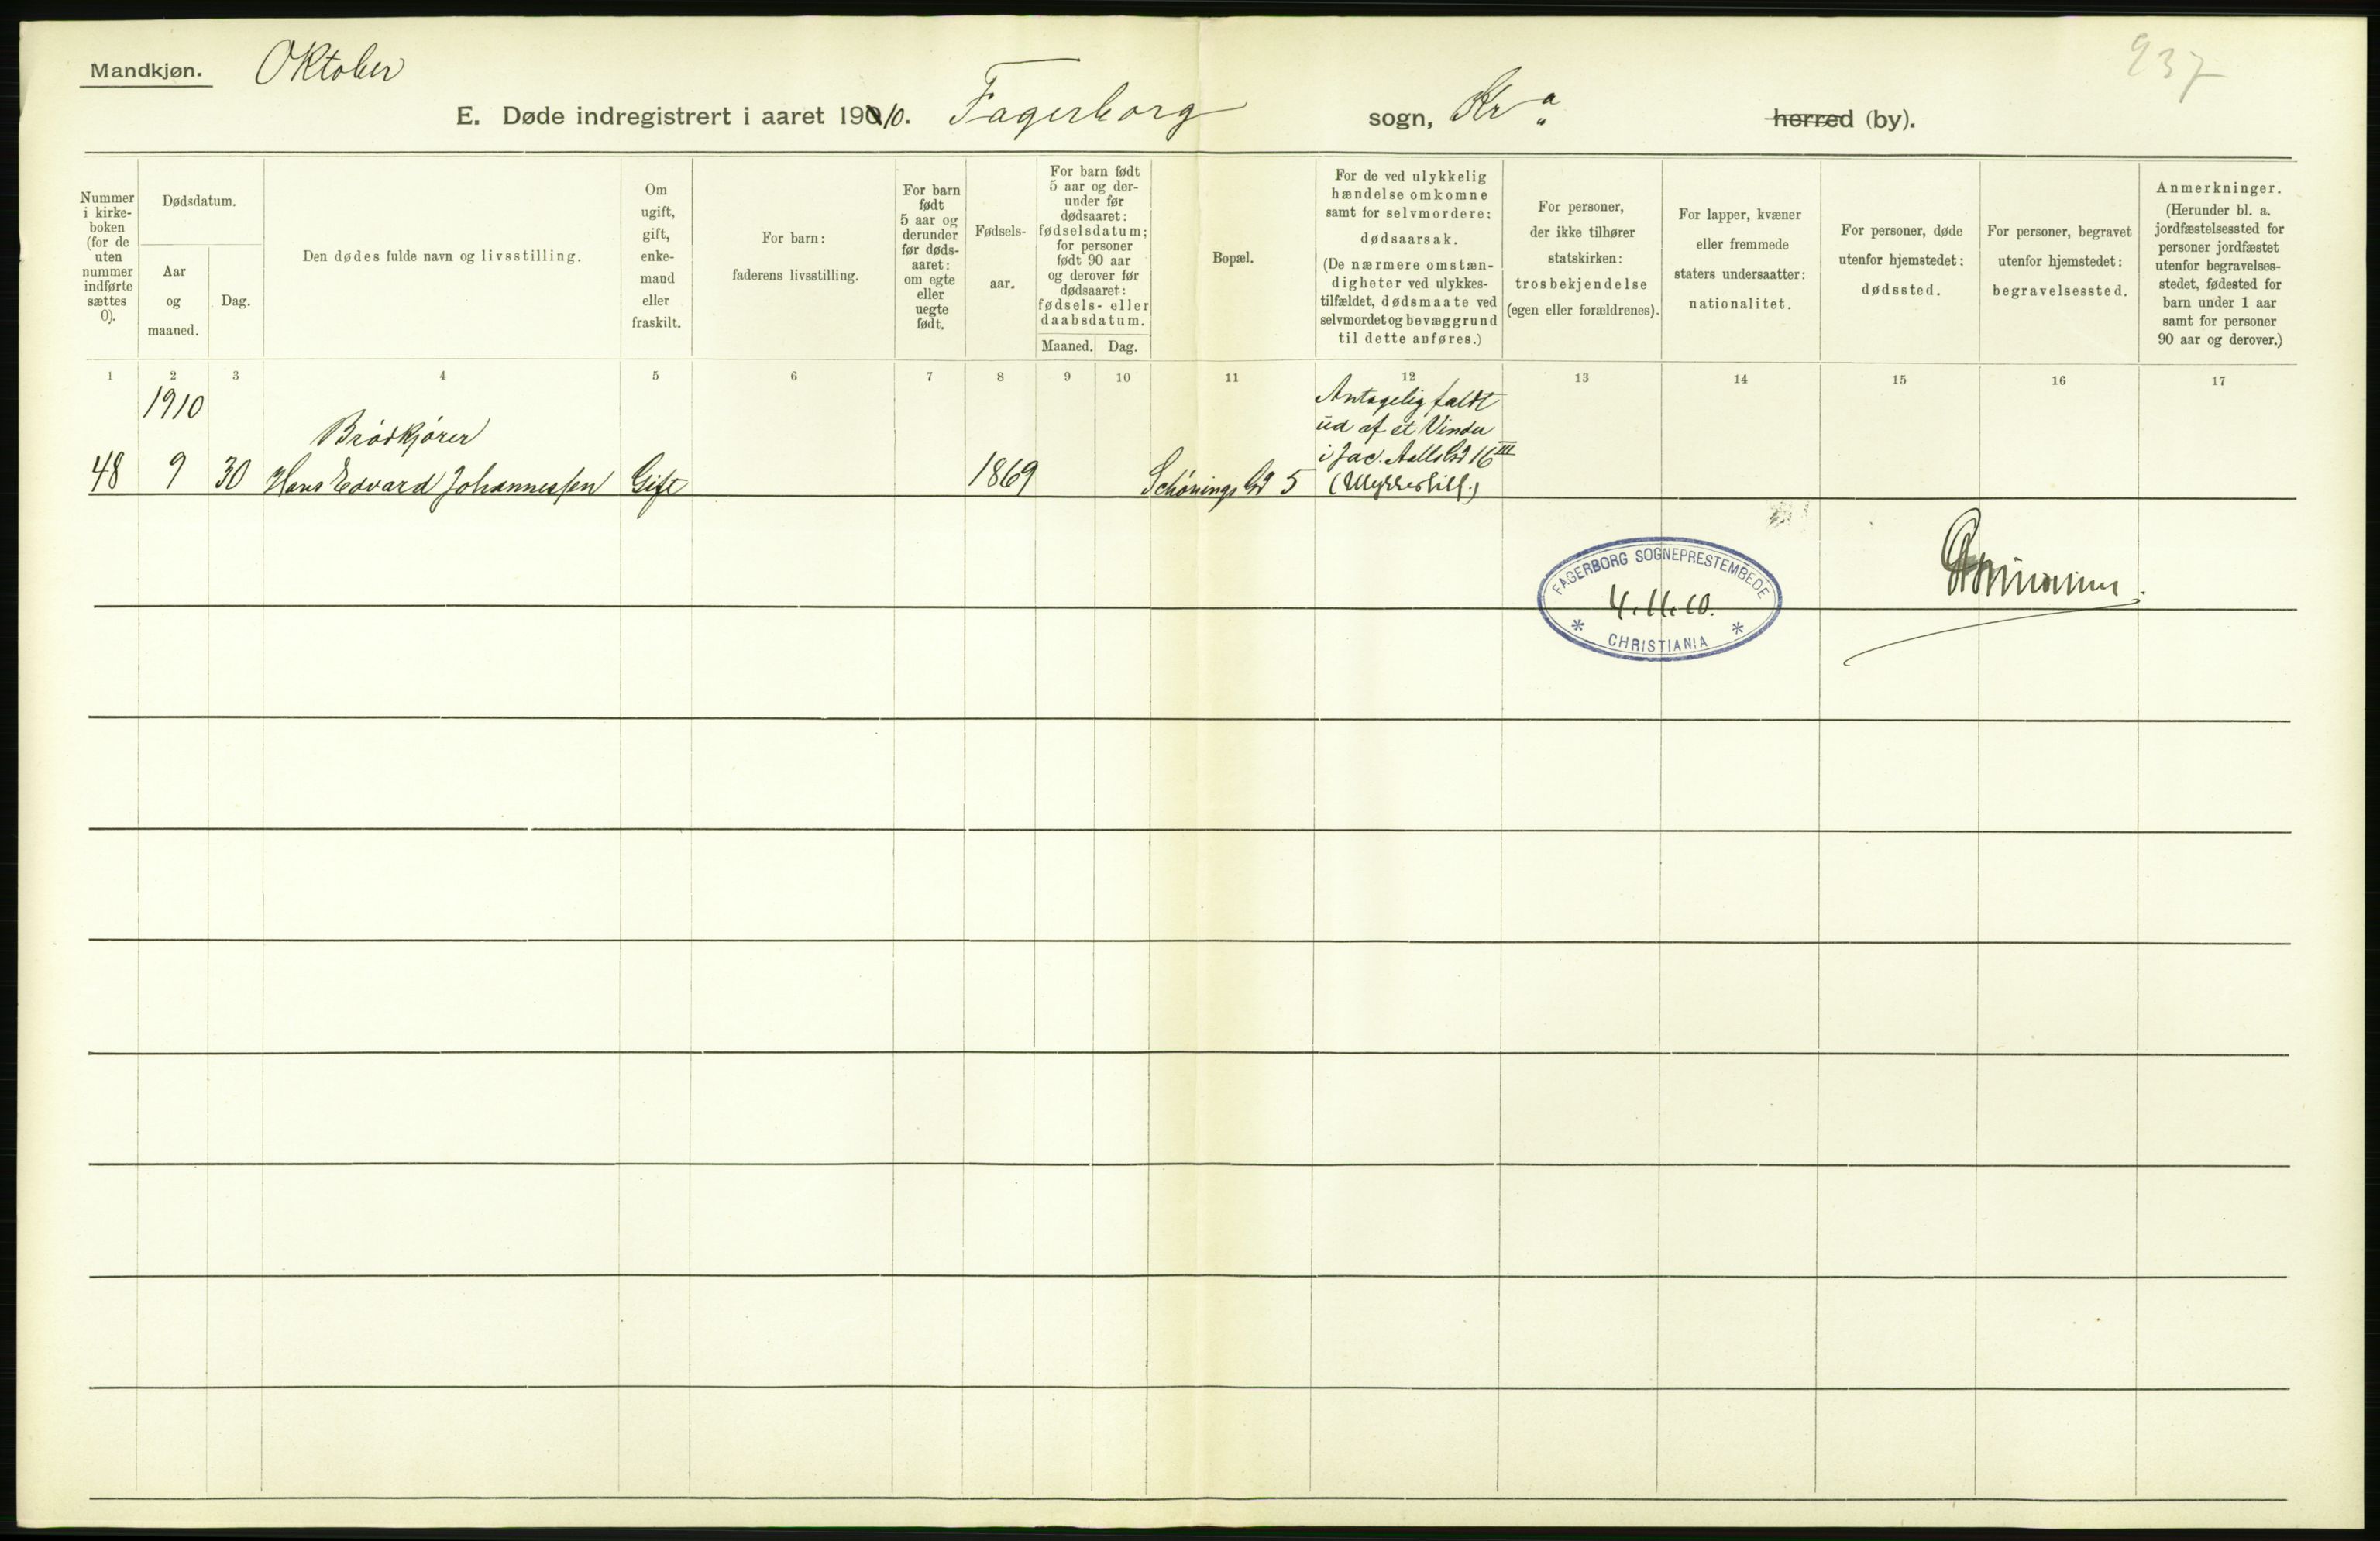 Mandkjøn. Oktober
237
E. Døde indregistrert i aaret 1910. Fagerborg sogn, Kr.a herred (by).
Nummer
i kirke-
boken
(for de
uten
nummer
indførte
sættes
0).
Dødsdatum.
Aar
og
maaned.
Dag.
Den dødes fulde navn og livsstilling.
Om
ugift,
gift,
enke-
mand
eller
fraskilt.
For barn:
faderens livsstilling.
For barn
født
5 aar og
derunder
før døds-
aaret:
om egte
eller
uegte
født.
Fødsels-
aar.
For barn født
5 aar og der-
under før
dødsaaret:
fødselsdatum;
for personer
født 90 aar
og derover før
dødsaaret:
fødsels- eller
daabsdatum.
Maaned. Dag.
Bopæl.
For de ved ulykkelig
hændelse omkomne
samt for selvmordere:
dødsaarsak.
(De nærmere omstæn-
digheter ved ulykkes-
tilfældet, dødsmaate ved
selvmordet og bevæggrund
til dette anføres.)
For personer,
der ikke tilhører
statskirken:
trosbekjendelse
(egen eller forældrenes).
For lapper, kvæner
eller fremmede
staters undersaatter:
nationalitet.
For personer, døde
utenfor hjemstedet:
dødssted.
For personer, begravet
utenfor hjemstedet:
begravelsessted.
Anmerkninger.
(Herunder bl. a.
jordfæstelsessted for
personer jordfæstet
utenfor begravelses-
stedet, fødested for
barn under 1 aar
samt for personer
90 aar og derover.)
1 2 3 4 5 6 7 8 9 10 11 12 13 14 15 16 17
1910
Brødkjører
48 9 30 Hans Edvard Johannessen Gift 1869 Schønings Gd 5
Antagelig faldt
ud af et Vindu
i Jac. Aalls Gd 16 III
(Ulykkestilf.)
FAGERBORG SOGNEPRESTEMBEDE
4.11.10.
* CHRISTIANIA *